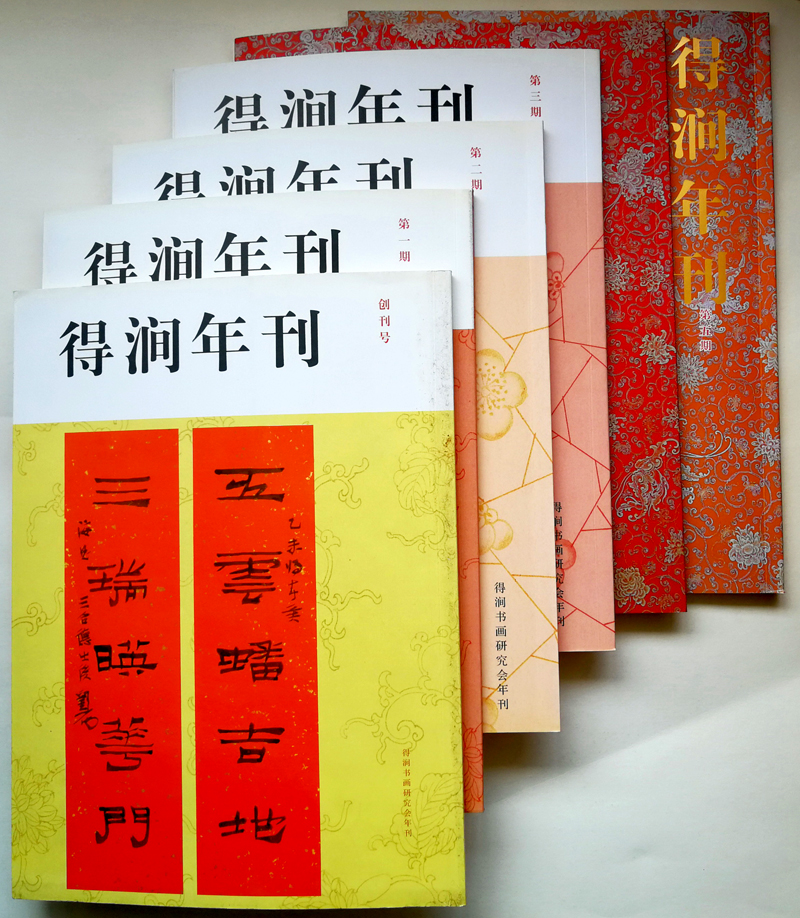 得涧年刊
创刊号
五雲蟠吉地
三瑞暎華門
得涧书画研究会年刊
得涧年刊
第一期
得涧年刊
第二期
得涧书画研究会年刊
得涧年刊
第三期
得涧书画研究会年刊
得涧年刊
第五期